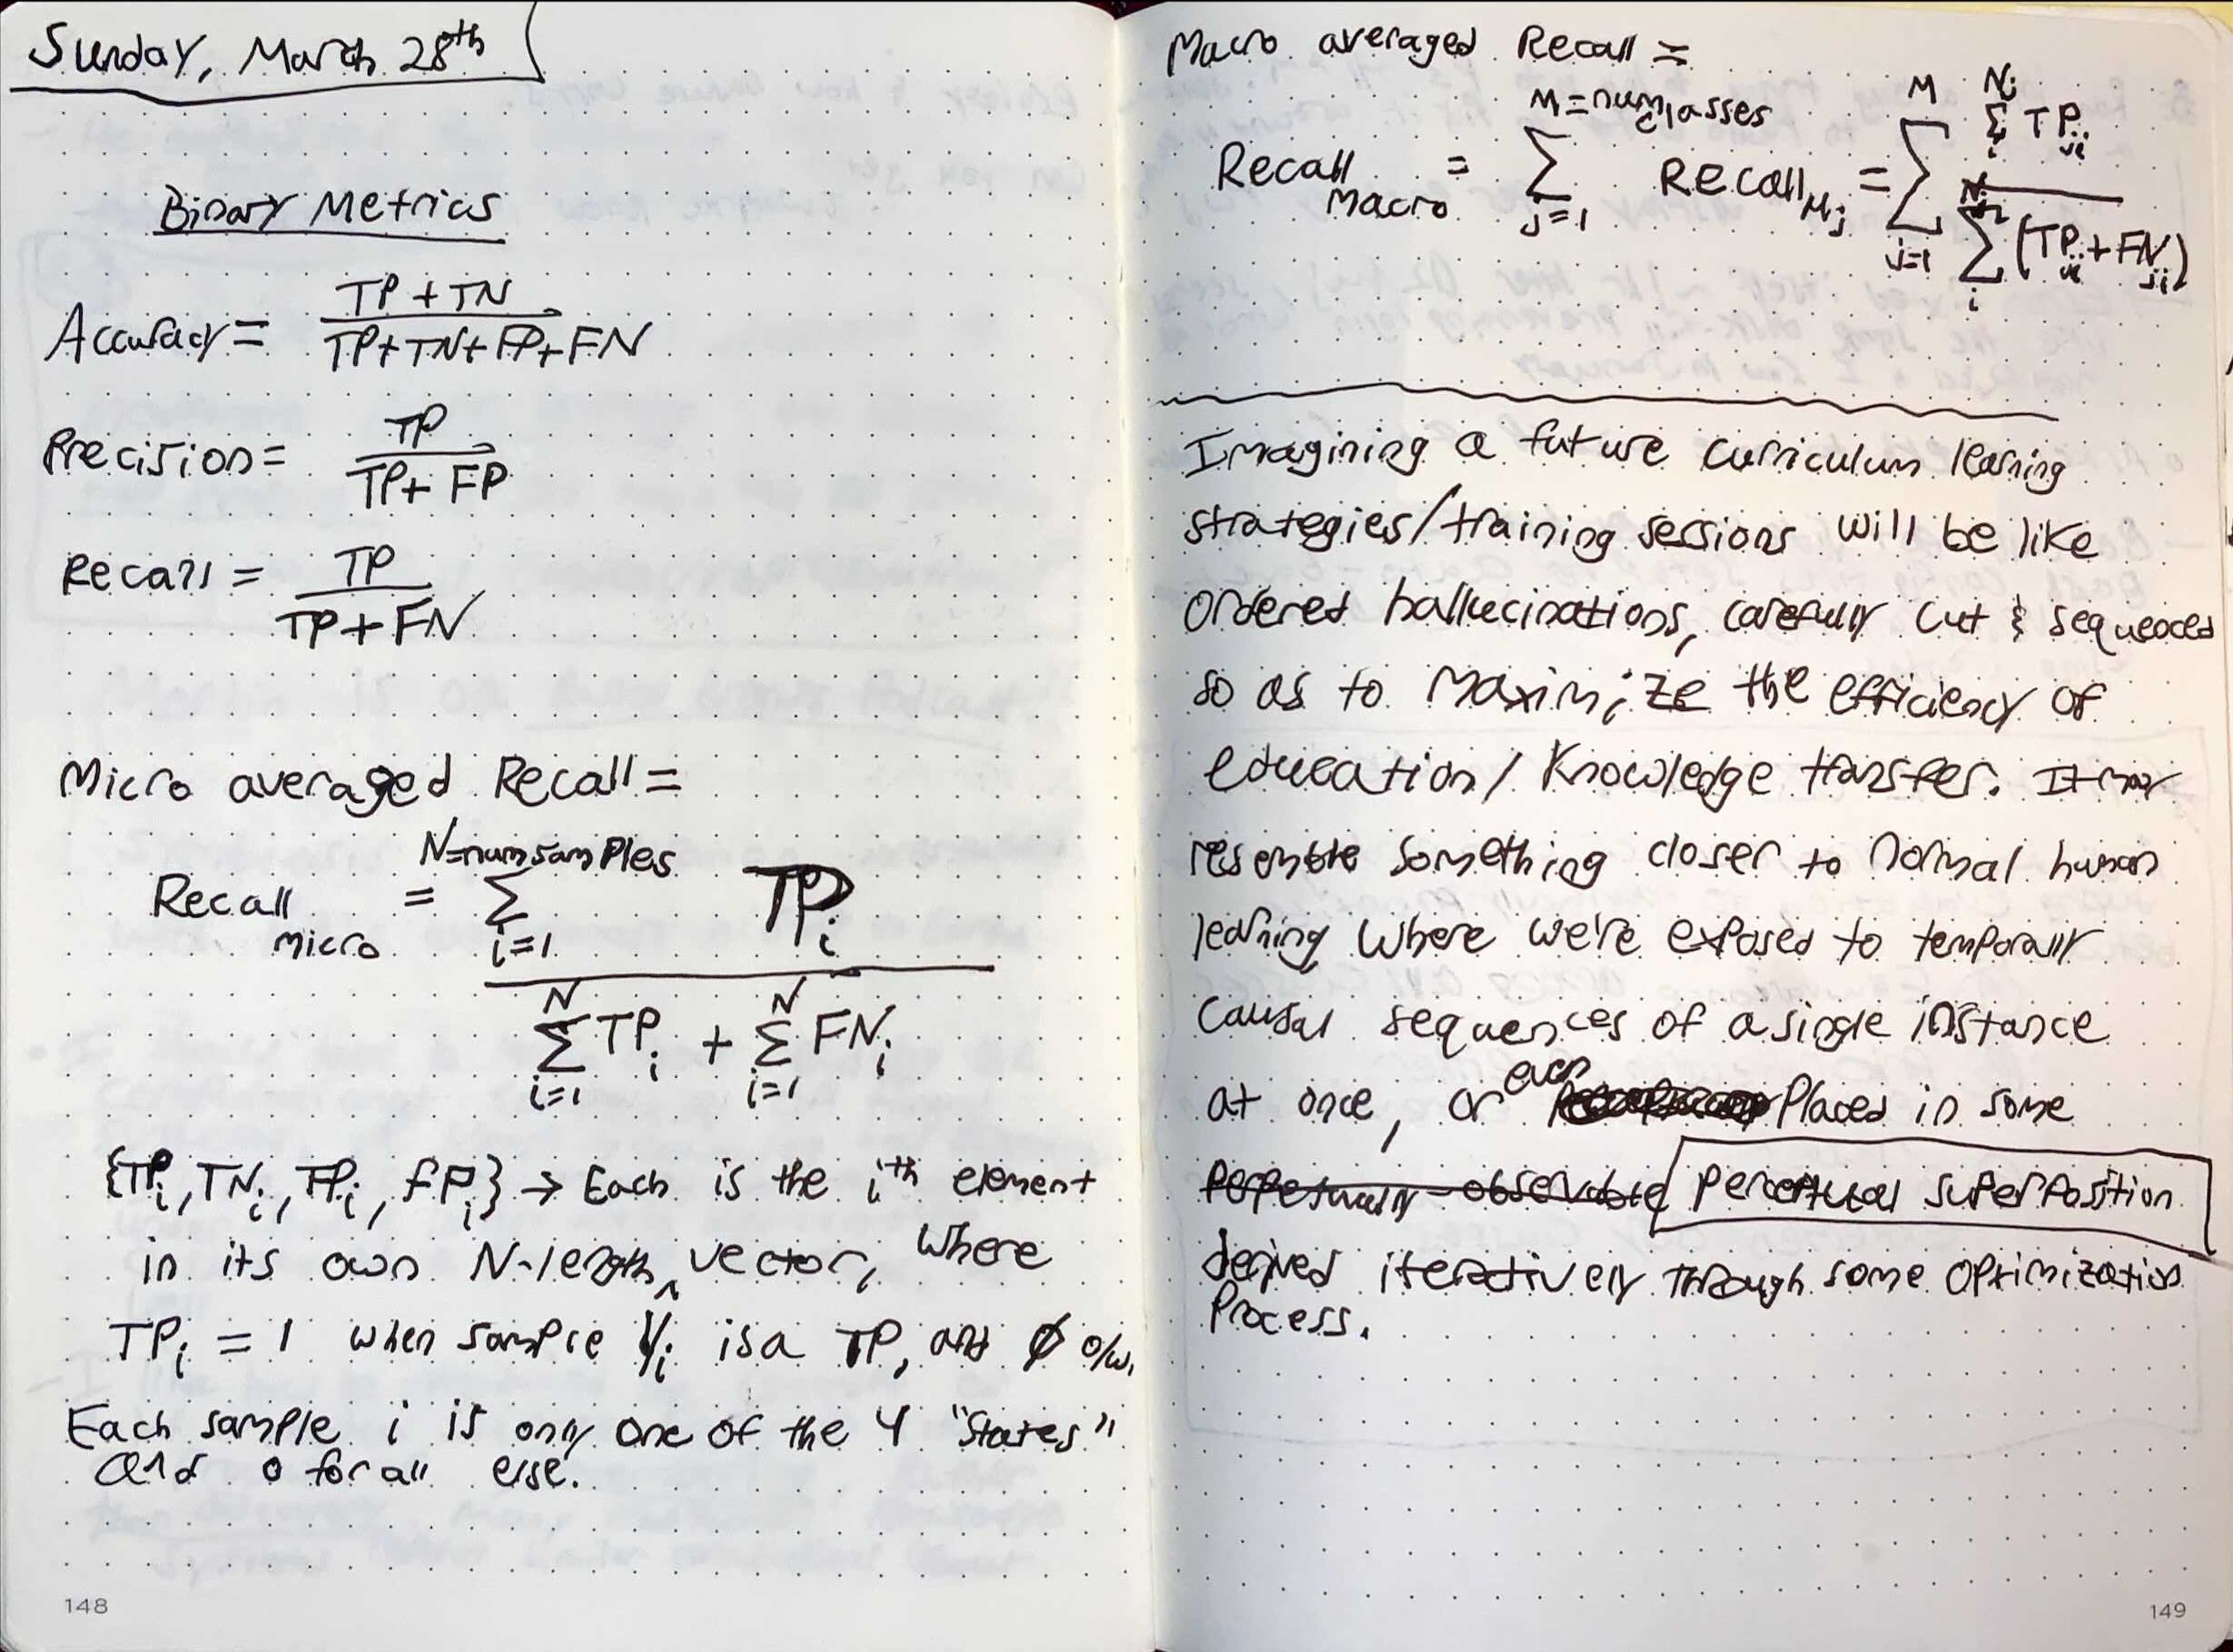 Sunday, March 28th
Binary Metrics
Accuracy = TP + TN / TP + TN + FP + FN
Precision = TP / TP + FP
Recall = TP / TP + FN
Micro averaged Recall =
N=num samples
Recall micro = Σ i=1 TPi
N Σ i=1 TPi + N Σ i=1 FNi
{TPi, TNi, FPi, FPi} → Each is the ith element
in its own N-length vector, where
TPi = 1 when sample Yi is a TP, and 0 o/w.
Each sample i is only one of the 4 "States"
and 0 for all else.
148
Macro averaged Recall =
M = num classes
Recall Macro = Σ j=1 Recall Mj = M Σ j=1 Nj Σ i TPji / Nj Σ i (TPji + FNji)
Imagining a future curriculum learning
strategies/training sessions will be like
ordered hallucinations, carefully cut & sequenced
so as to maximize the efficiency of
education/Knowledge transfer. It may
resemble something closer to normal human
learning where we're exposed to temporally
causal sequences of a single instance
at once, or even placed in some
perpetually observable perceptual superposition
derived iteratively through some optimization
process.
149